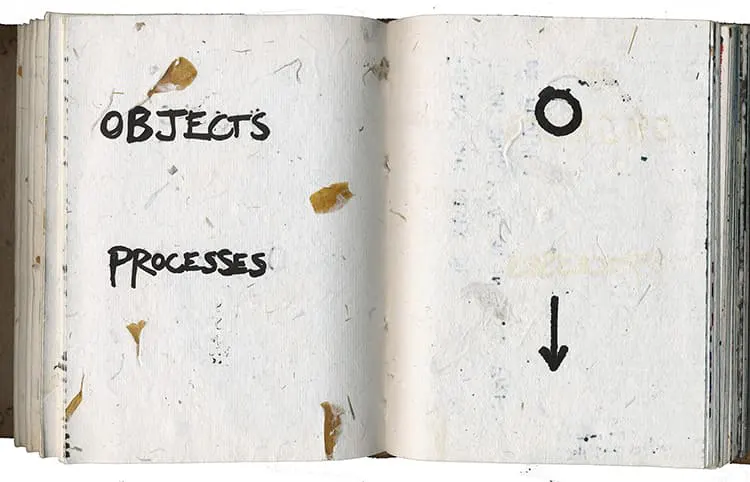 OBJECTS
PROCESSES